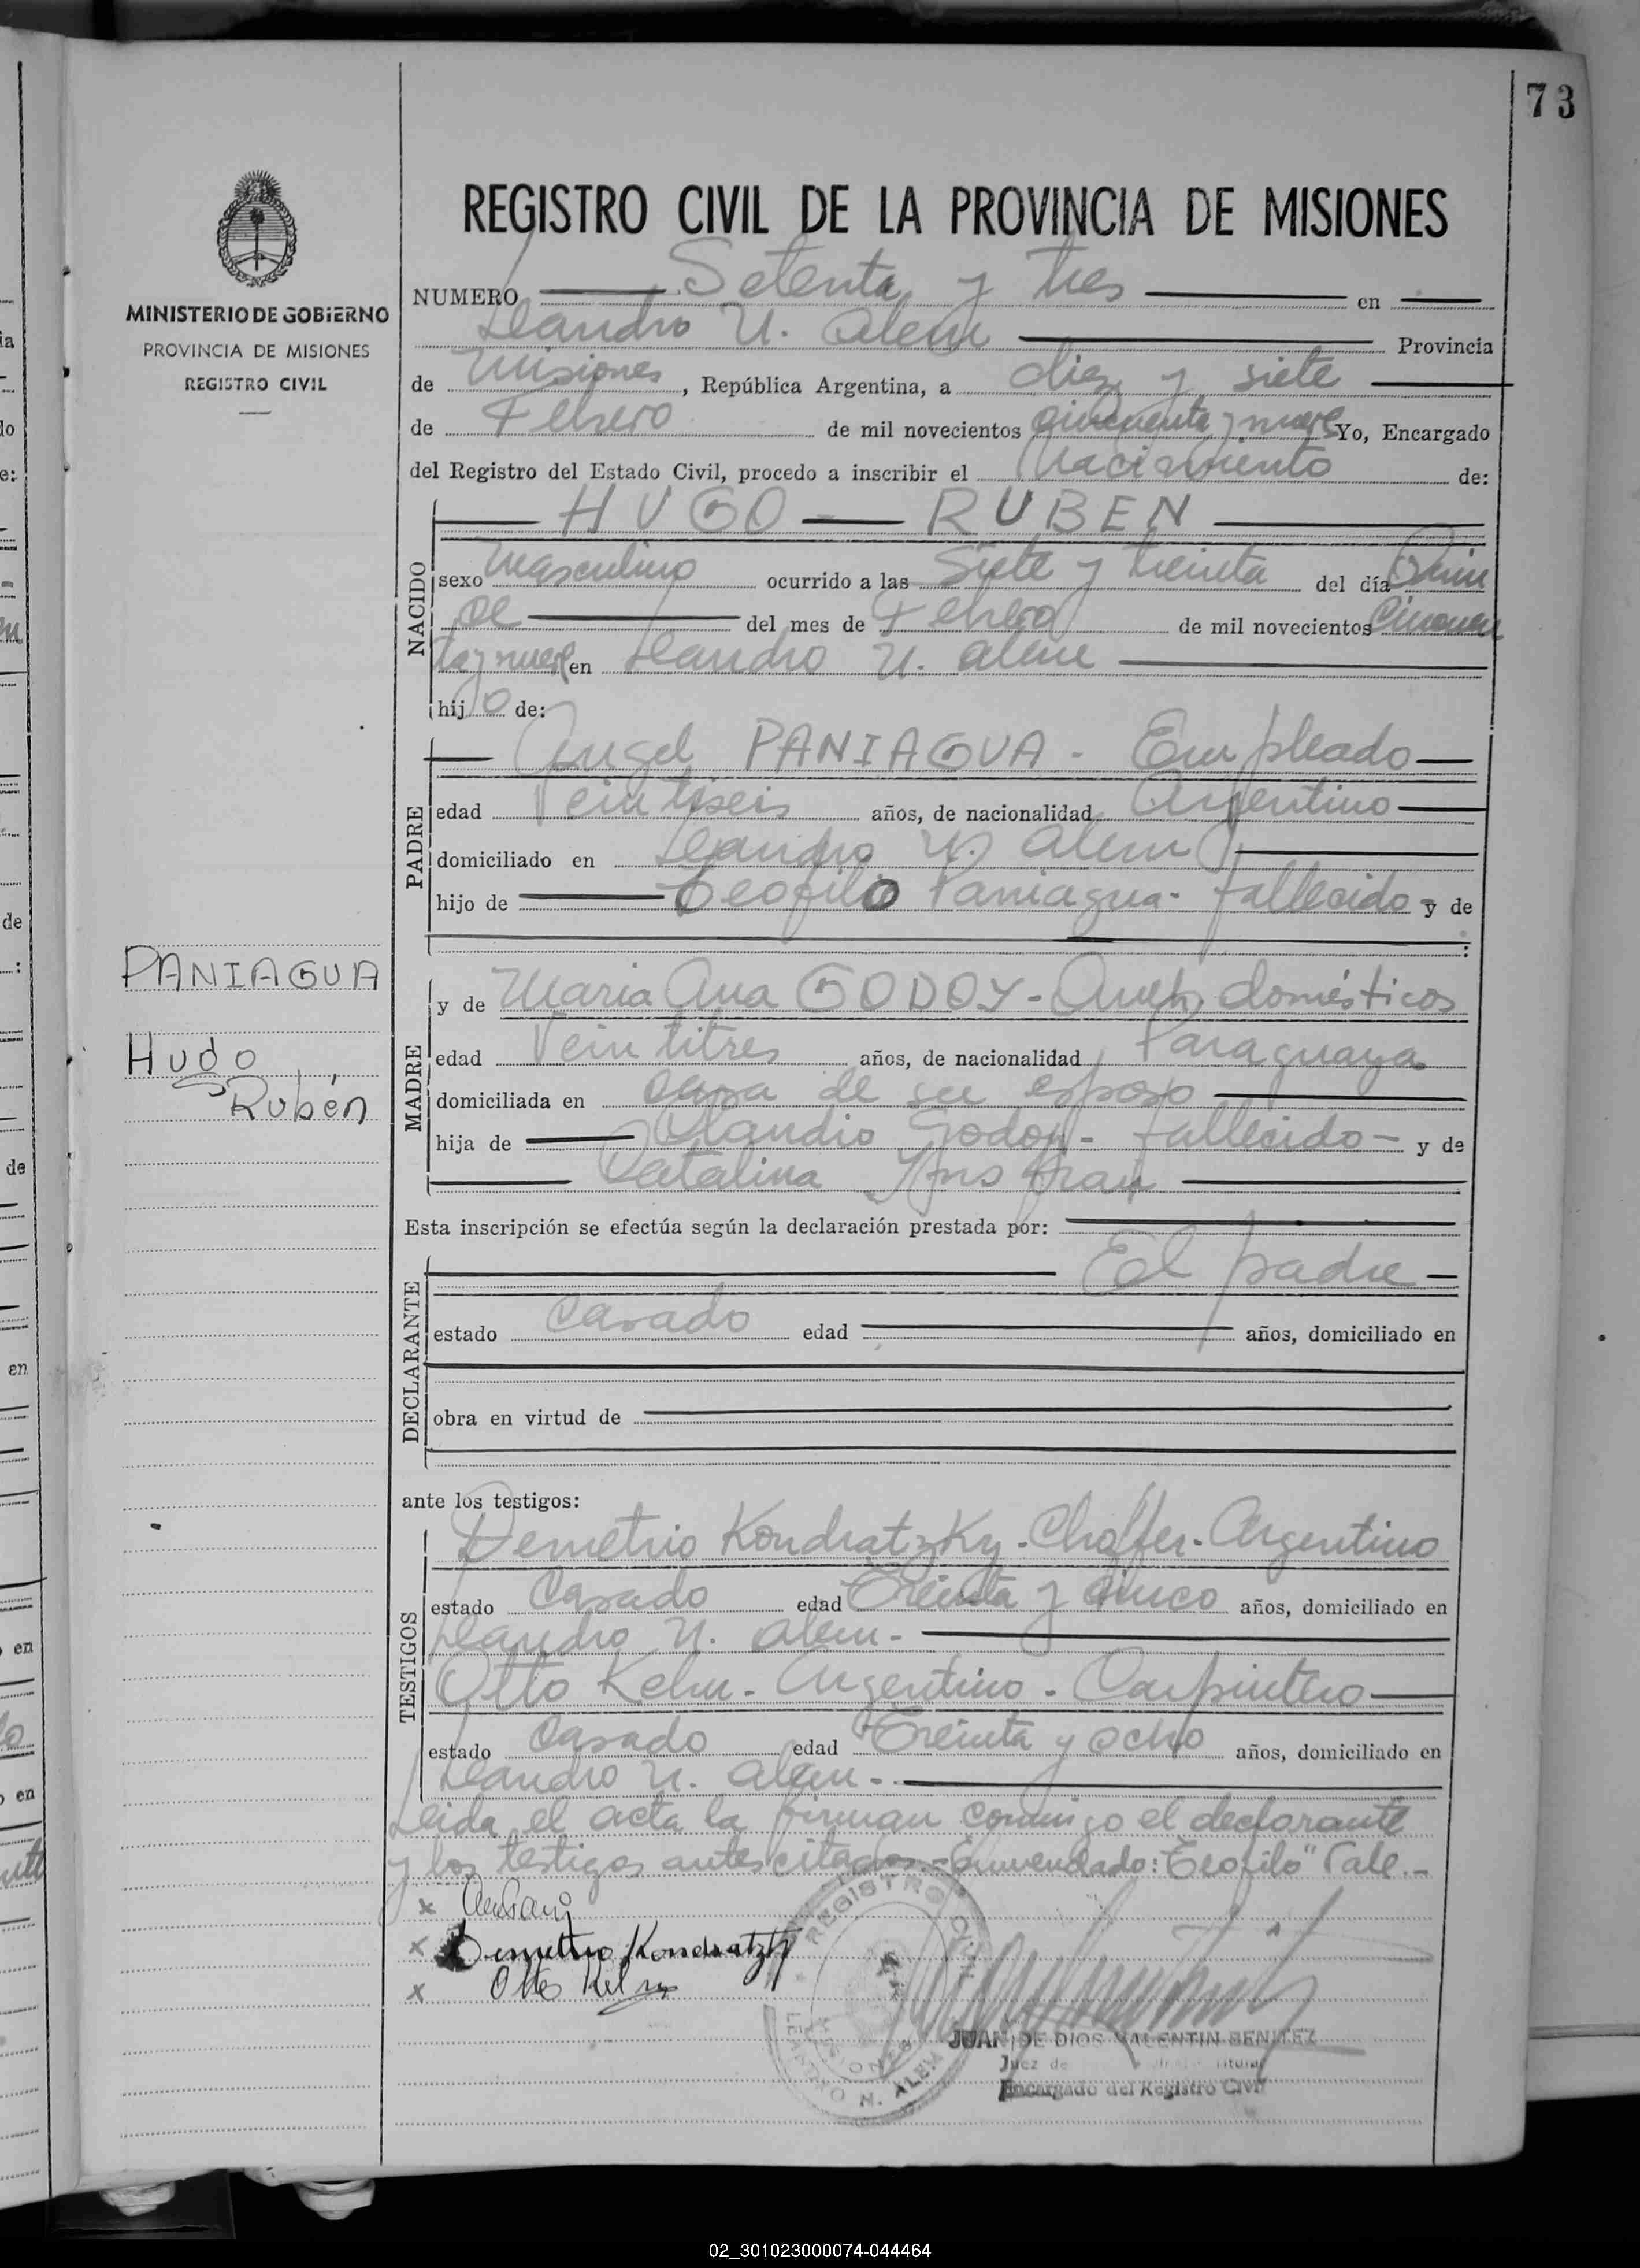 73
REGISTRO CIVIL DE LA PROVINCIA DE MISIONES
MINISTERIO DE GOBIERNO
PROVINCIA DE MISIONES
REGISTRO CIVIL
NUMERO Setenta y tres en
Leandro N. Alem Provincia
de Misiones, República Argentina, a diez y siete
de Febrero de mil novecientos cincuenta y nueve Yo, Encargado
del Registro del Estado Civil, procedo a inscribir el Nacimiento de:
NACIDO
HUGO — RUBEN
sexo Masculino ocurrido a las Siete y treinta del día Quin
ce del mes de Febrero de mil novecientos Cincuen
ta y nueve en Leandro N. Alem
hijo de:
PADRE
Angel PANIAGUA - Empleado
edad Veintiseis años, de nacionalidad Argentino
domiciliado en Leandro N. Alem
hijo de Teofilo Paniagua - fallecido y de
PANIAGUA
Hugo
Rubén
MADRE
y de Maria Ana GODOY - Queh. domésticos
edad Veintitres años, de nacionalidad Paraguaya
domiciliada en casa de su esposo
hija de Claudio Godoy - fallecido - y de
Catalina
Esta inscripción se efectúa según la declaración prestada por:
DECLARANTE
El padre
estado Casado edad años, domiciliado en
obra en virtud de
ante los testigos:
TESTIGOS
Demetrio Kondratzky - Choffer - Argentino
estado Casado edad Treinta y cinco años, domiciliado en
Leandro N. Alem.-
Otto Kelm - Argentino - Carpintero
estado Casado edad Treinta y ocho años, domiciliado en
Leandro N. Alem.-
Leida el acta la firman conmigo el declarante
y los testigos antes citados.- Enmendado: Teofilo" Vale.-
x
x Demetrio Kondratzky
x Otto Kelm
REGISTRO CIVIL
MISIONES
LEANDRO N. ALEM
JUAN DE DIOS VALENTIN BENITEZ
Juez de
Encargado del Registro Civil
02_301023000074-044464